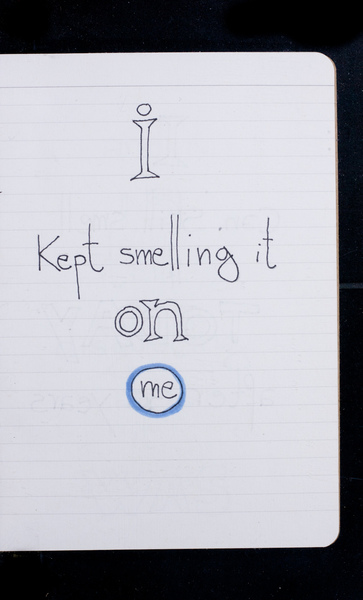 i
Kept smelling it
on
me